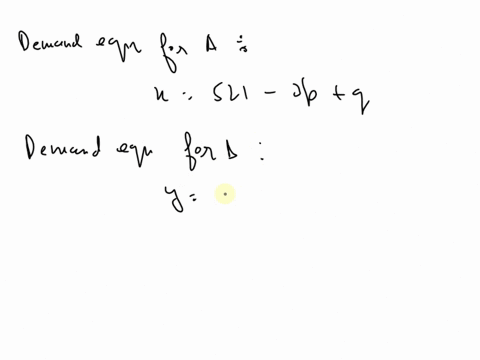 Demand eqn for A :
x = 521 - 2p + q
Demand eqn for A :
y =